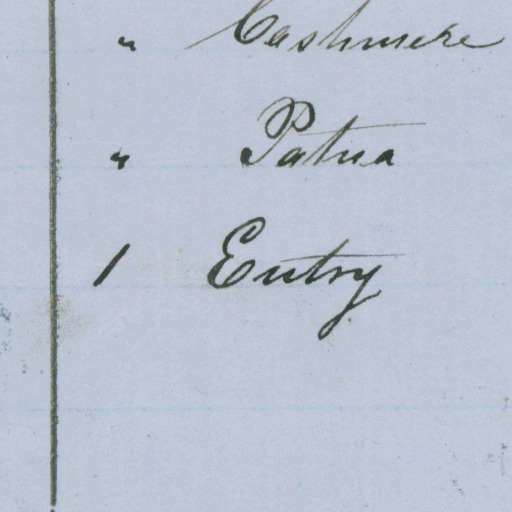 " Cashmere
" Patna
1 Entry